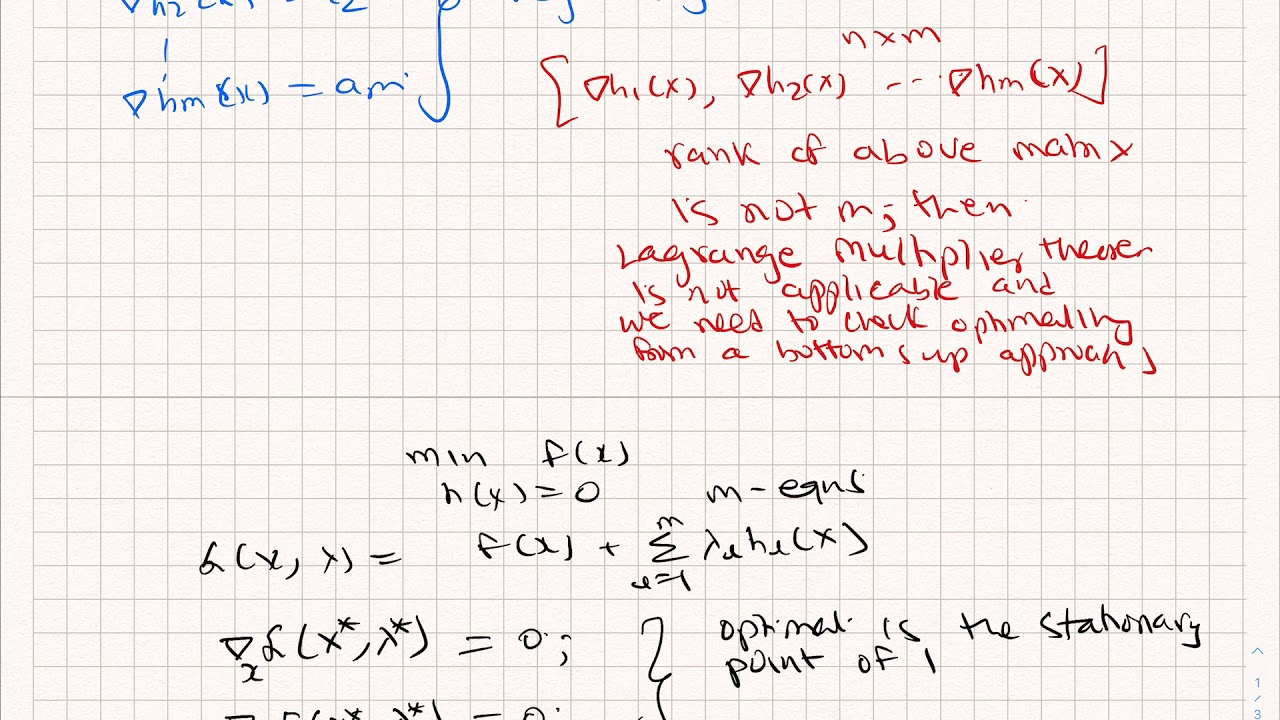 ∇hm(x) = am
n×m
[∇h1(x), ∇h2(x) --- ∇hm(x)]
rank of above matrix
is not m; then
Lagrange multiplier theorem
is not applicable and
we need to check optimality
from a bottoms up approach,
min f(x)
h(x) = 0 m-eqns
L(x, λ) = f(x) + Σ_{i=1}^{m} λi hi(x)
∇x L(x*, λ*) = 0;
optimal is the stationary
point of
1
/
3